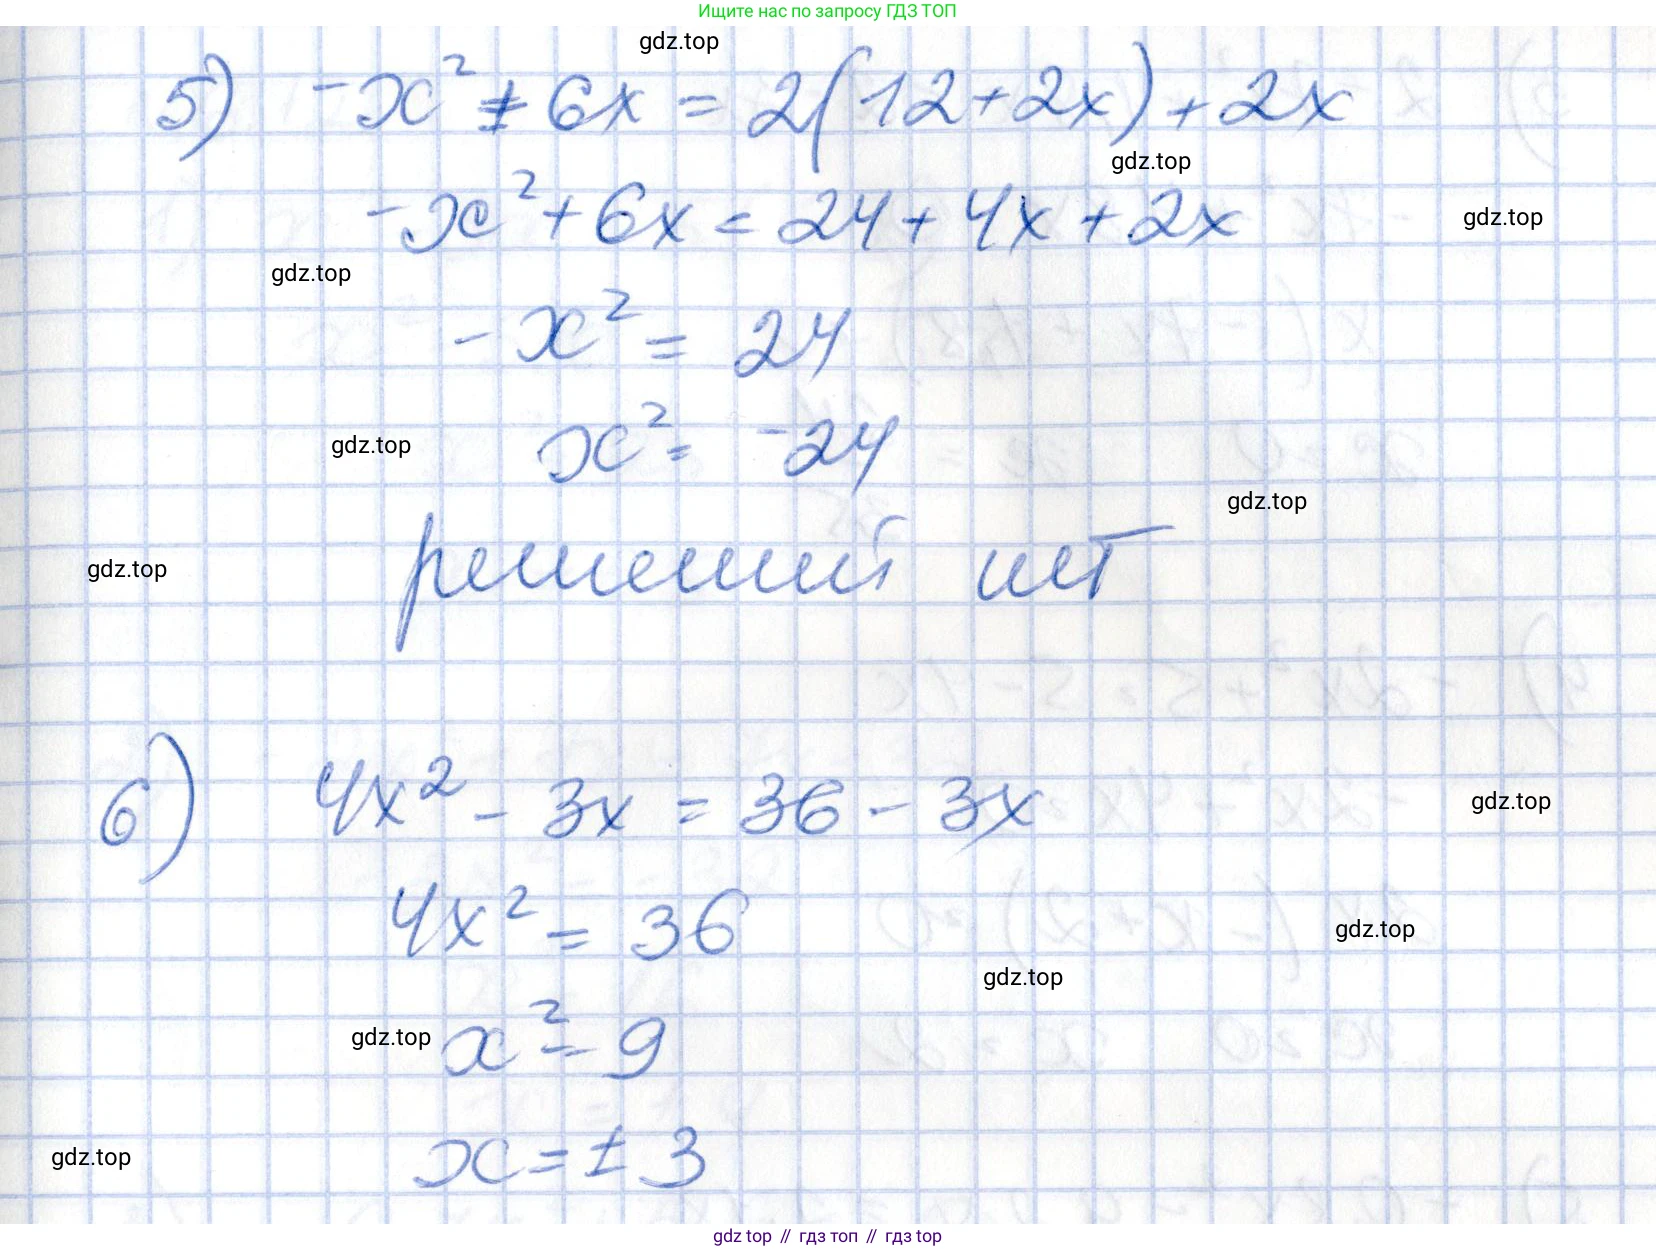 Ищите нас по запросу ГДЗ ТОП
gdz.top
5) -x² + 6x = 2(12+2x)+2x
gdz.top
-x²+6x=24+4x+2x
gdz.top
gdz.top
-x² = 24
x² = -24
gdz.top
gdz.top
решений нет
gdz.top
6) 4x² - 3x = 36 - 3x
gdz.top
4x² = 36
gdz.top
gdz.top
x² = 9
gdz.top
x = ± 3
gdz.top
gdz top // гдз топ // гдз top